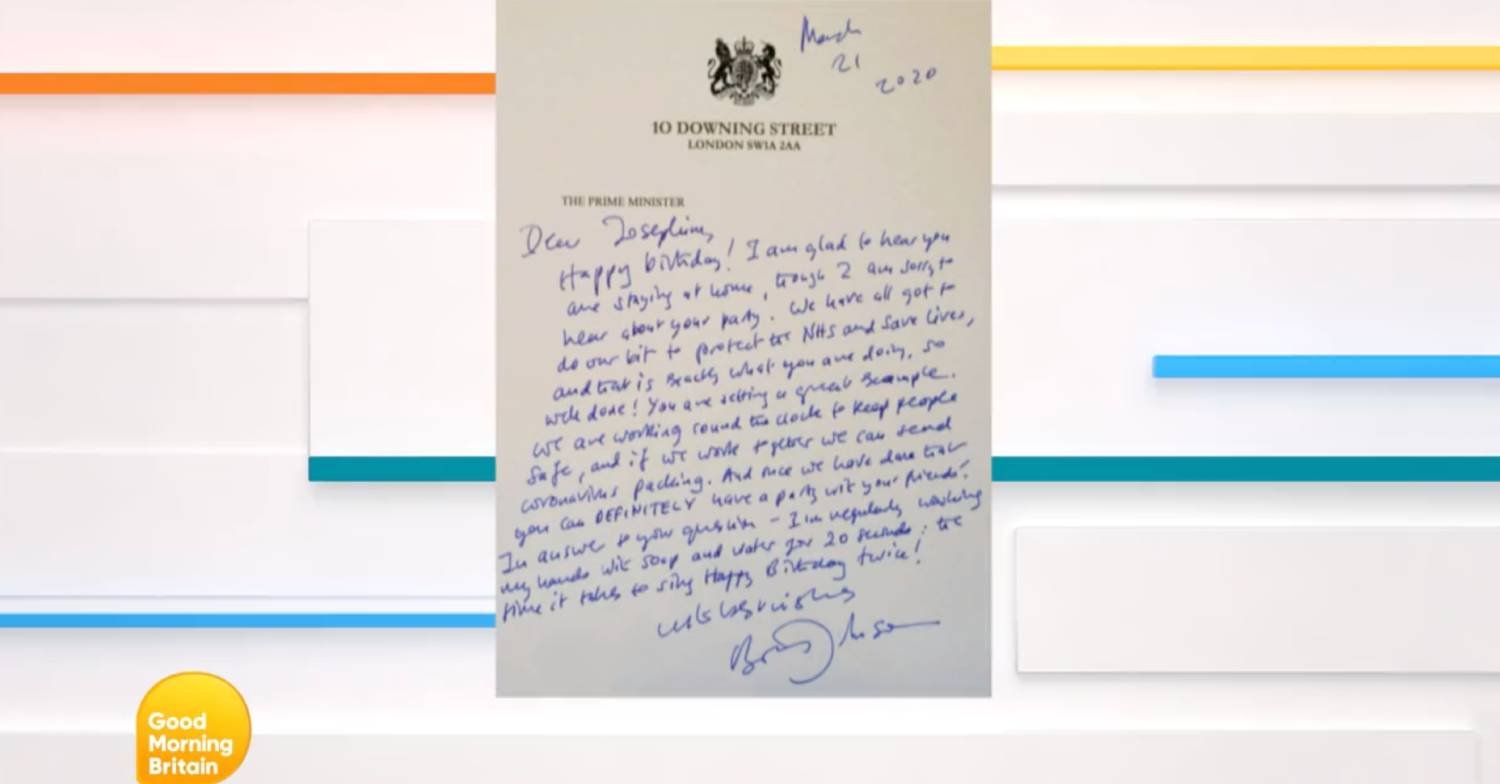 March
21
2020
10 DOWNING STREET
LONDON SW1A 2AA
THE PRIME MINISTER
Dear Josephine,
Happy birthday! I am glad to hear you
are staying at home, though I am sorry to
hear about your party. We have all got to
do our bit to protect the NHS and save lives,
and that is exactly what you are doing, so
well done! You are setting a great example.
We are working round the clock to keep people
safe, and if we work together we can send
coronavirus packing. And once we have done that
you can DEFINITELY have a party with your friends.
In answer to your question - I'm regularly washing
my hands with soap and water for 20 seconds; the
time it takes to sing Happy Birthday twice!
With best wishes
Boris Johnson
Good
Morning
Britain